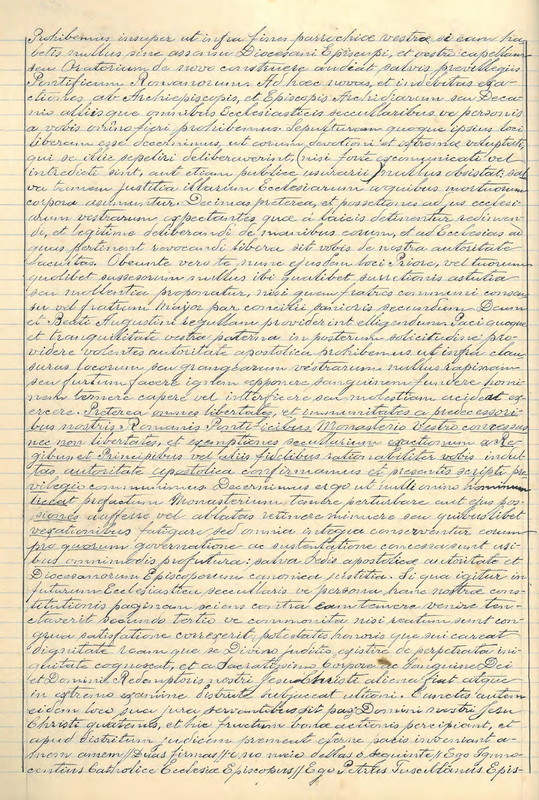 Prohibemus insuper ut infra fines parrochiæ vestræ si eam ha
betis nullus sine assensu Diocesani Episcopi, et vestri capellam
seu Oratorium de novo construere audeat salvis previllegiis
Pontificum Romanorum. Ad hæc novas, et indebitas exa-
ctiones ab Archiepiscopis, et Episcopis Archidiarum seu Deca-
nis alliis que omnibus Ecclesiasticis secularibus ve personis
a vobis omino fieri prohibemus. Sepulturam quoque ipsius loci
liberam esse decernimus, ut eorum devotioni et extremæ voluptati,
qui se illic sepeliri deliberaverint, (nisi forte excomunicati vel
intredicti sint, aut eteam publice usurarii) nullus obsistat: sal
va tamen justitia illarium Ecclesiarum aquibus mortuorum
corpora assumuntur. Decimas preterea, et possetiones ad us ecclesi-
arum vestrarum expectantes quæ á laicis detinentur redimen-
di, et legitime deliberandi de manibus eorum, et ad Ecclesias ad
quas pertinent revocandi libera sit vobis de nostra autoritate
facultas. Obeunte vero te nunc ejusdem loci Priore, vel tuorum
quolibet sussesorum nullus ibi qualibet surretionis astutia
seu viollentia proponatur, nisi quem fratres communi consen
su vel fratrum Major par concilii sanioris secundum Deum
et Beati Augustini regullam providerint elligendum. Paci quoque
et tranquilitate vestra paterna in posterum solicitudine pro-
videre volentes autoritate apostolica prohibemus ut infra clau
suras locorum seu grangearum vestrarum nullus rapinam
seu furtum facere ignem apponere sanguinem fundere homi
nem temere capere vel interficere seu molestiam acideat ex
ercere. Preterea omnes libertates, et immunitates a predecessori-
bus nostris Romanis Pontificibus Monasterio Vestro concessas
nec non libertates, et exemptiones secullarium exactionum a Re-
gibus, et Principibus vel aliis fidelibus rationabiliter vobis indul
tas, autoritate apostolica confirmamus et presentis scripti pre
vilegio communimus. Decernimus ergo ut nulli omino hominum
liceat prefactum Monasterium temere perturbare aut ejus pos-
siones aufferre vel ablatas retinere minuere seu quibus libet
vexationibus fatigare sed omnia integra conserventur eorum
pro quorum governatione ac sustentatione concessa sunt usi-
bus omnimodis profutura: salva Sedis apostolicæ autoritate et
Diocesanorum Episcoporum canonica justitia. Si qua igitur in
futurum Ecclesiastica secullaris ve persona hanc nostræ cons-
titutionis paginam sciens contra eam temere venire ten-
claverit secundo tertio ve commonita nisi reatum suum con-
grua satisfatione correxerit, potestatis honoris que sui careat
dignitate ream que se Divino juditio existere de perpetrata ini-
quitate cognoscat, et a Sacratissimo Corpore ac Sanguine Dei
et Domini Redemptoris nostri Jesu Christi aliena fiat atque
in extremo examine districte subjaceat ultioni. Cunctis autem
eidem loco sua jura servantibus sit pax Domini nostri Jesu
Christi quatenus, et hic fructum bonæ actionis percipiant, et
apud districtum judicem premeat eternæ pacis inveniant a-
men amem//
Ego Inno-
centius Catholicæ Eclesiæ Episcopus//Ego Petrus Tuscullanus Epis-